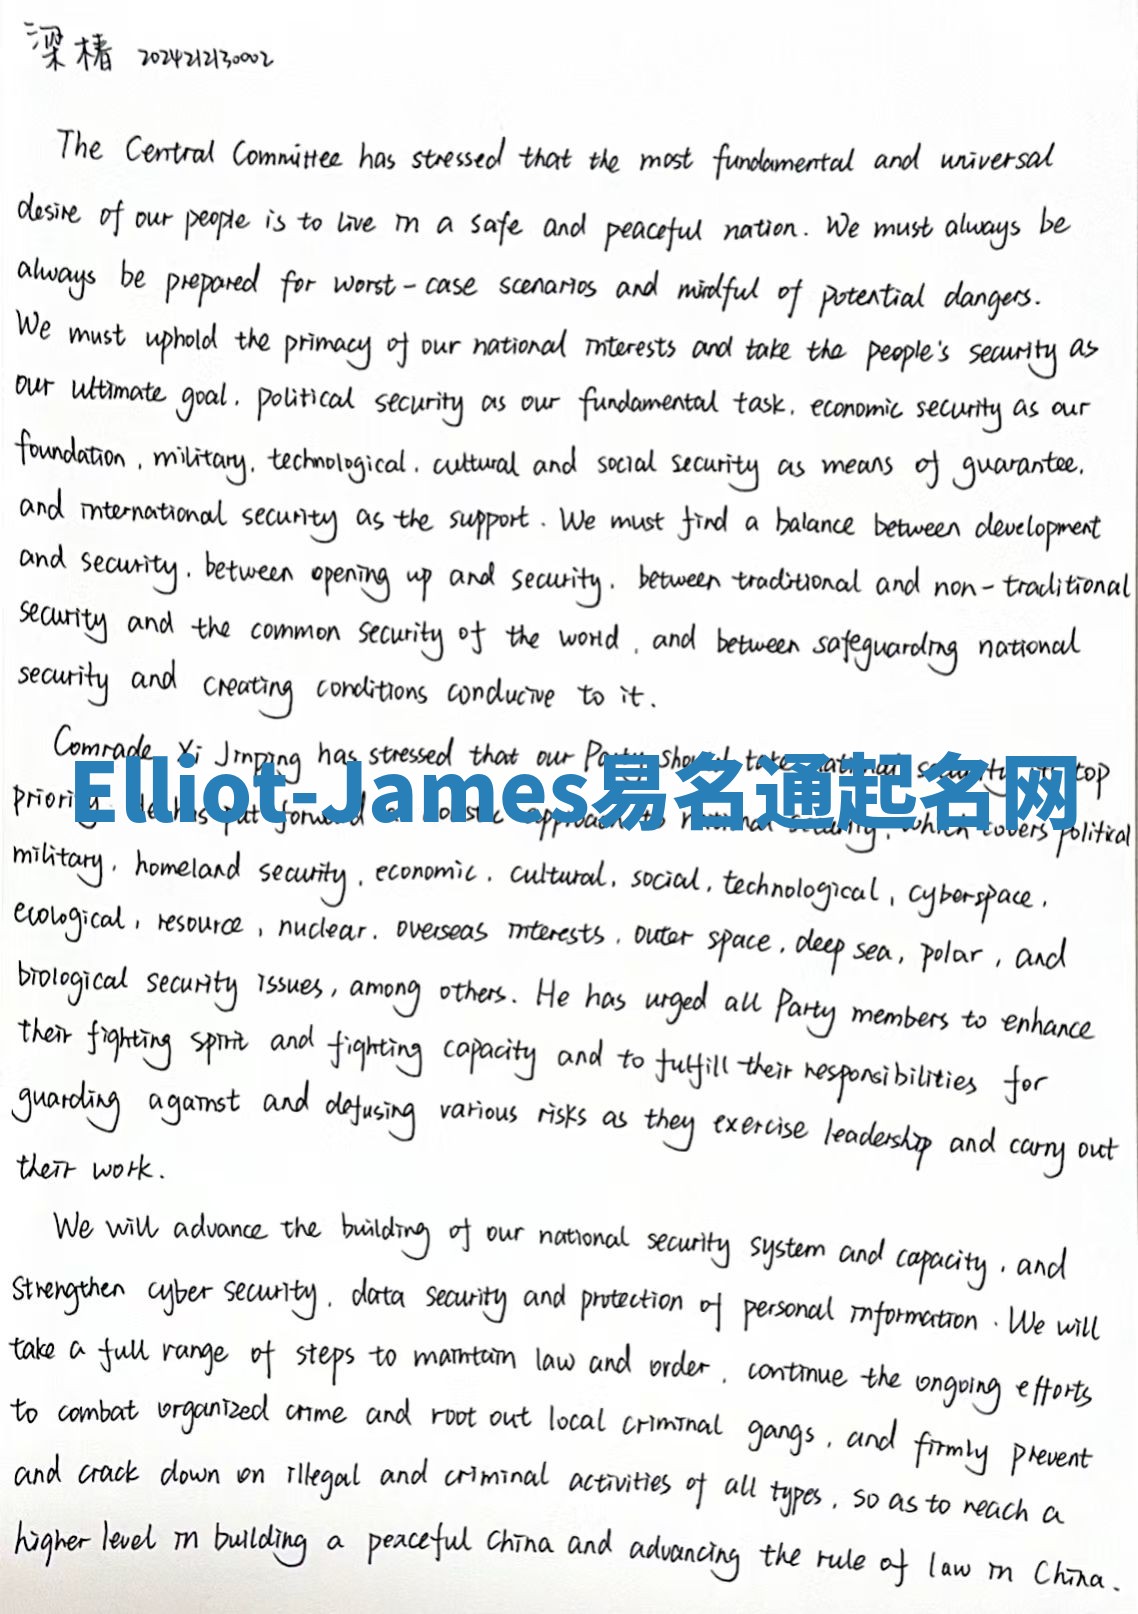 梁椿 2024212130002
The Central Committee has stressed that the most fundamental and universal
desire of our people is to live in a safe and peaceful nation. We must always be
always be prepared for worst-case scenarios and mindful of potential dangers.
We must uphold the primacy of our national interests and take the people's security as
our ultimate goal, political security as our fundamental task, economic security as our
foundation, military, technological, cultural and social security as means of guarantee,
and international security as the support. We must find a balance between development
and security, between opening up and security, between traditional and non-traditional
security and the common security of the world, and between safeguarding national
security and creating conditions conducive to it.
Comrade Xi Jinping has stressed that our Party should take national security top
Elliot-James易名通起名网
priority. He has put forward a holistic approach to national security, which covers political
military, homeland security, economic, cultural, social, technological, cyberspace,
ecological, resource, nuclear, overseas interests, outer space, deep sea, polar, and
biological security issues, among others. He has urged all Party members to enhance
their fighting spirit and fighting capacity and to fulfill their responsibilities for
guarding against and defusing various risks as they exercise leadership and carry out
their work.
We will advance the building of our national security system and capacity, and
strengthen cyber security, data security and protection of personal information. We will
take a full range of steps to maintain law and order, continue the ongoing efforts
to combat organized crime and root out local criminal gangs, and firmly prevent
and crack down on illegal and criminal activities of all types, so as to reach a
higher level in building a peaceful China and advancing the rule of law in China.